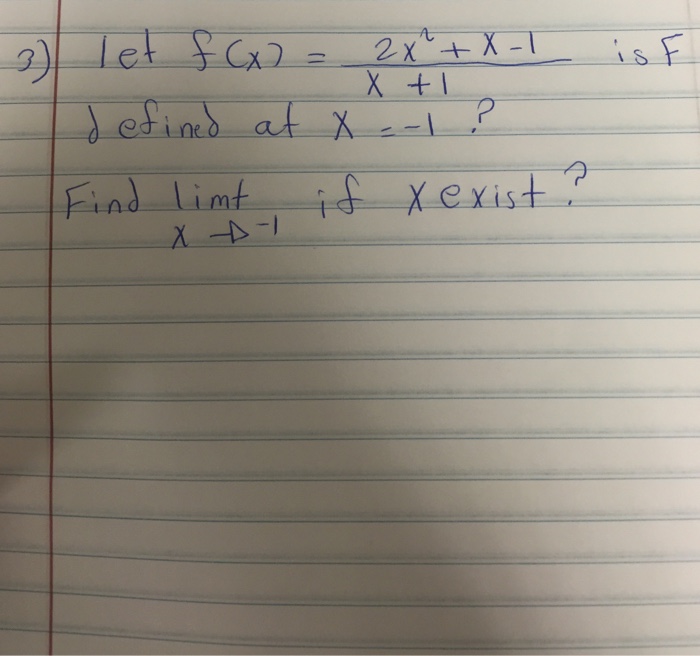 3) let f(x) = 2x² + x - 1 / x + 1 is F
defined at x = -1 ?
Find limt x → -1 if x exist ?